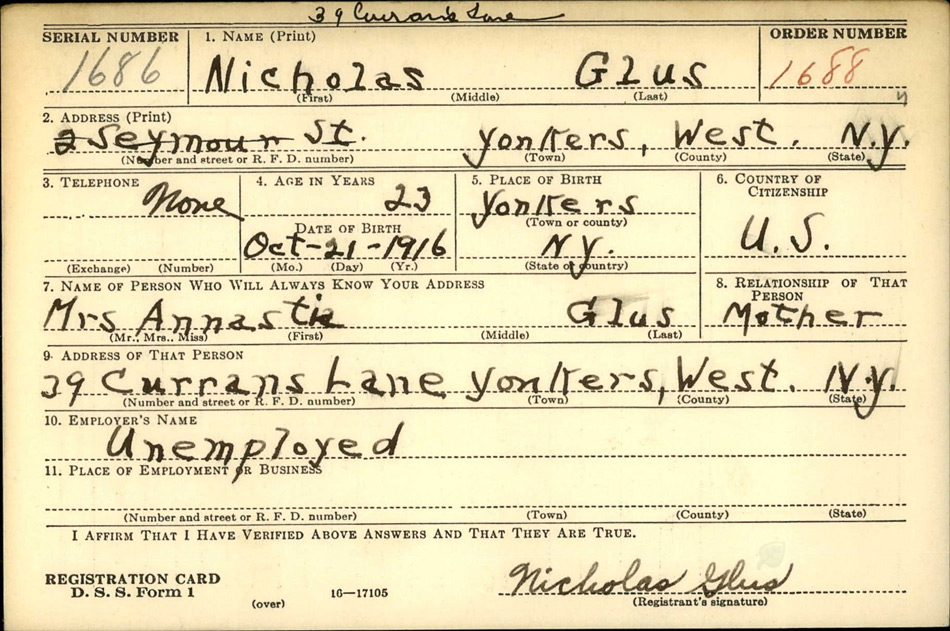 39 Curran's Lane
SERIAL NUMBER 1. NAME (Print) ORDER NUMBER
1686 Nicholas Glus 1688
(First) (Middle) (Last)
2. ADDRESS (Print)
2 Seymour St. Yonkers, West. N.y.
(Number and street or R. F. D. number) (Town) (County) (State)
3. TELEPHONE 4. AGE IN YEARS 5. PLACE OF BIRTH 6. COUNTRY OF CITIZENSHIP
None 23 Yonkers U.S.
(Town or county)
DATE OF BIRTH
Oct-21-1916 N.y.
(Exchange) (Number) (Mo.) (Day) (Yr.) (State or country)
7. NAME OF PERSON WHO WILL ALWAYS KNOW YOUR ADDRESS 8. RELATIONSHIP OF THAT PERSON
Mrs Annastie Glus Mother
(Mr., Mrs., Miss) (First) (Middle) (Last)
9. ADDRESS OF THAT PERSON
39 Currans Lane Yonkers, West. N.y.
(Number and street or R. F. D. number) (Town) (County) (State)
10. EMPLOYER'S NAME
Unemployed
11. PLACE OF EMPLOYMENT OR BUSINESS
(Number and street or R. F. D. number) (Town) (County) (State)
I AFFIRM THAT I HAVE VERIFIED ABOVE ANSWERS AND THAT THEY ARE TRUE.
REGISTRATION CARD
D. S. S. Form 1 Nicholas Glus
(over) 16—17105 (Registrant's signature)